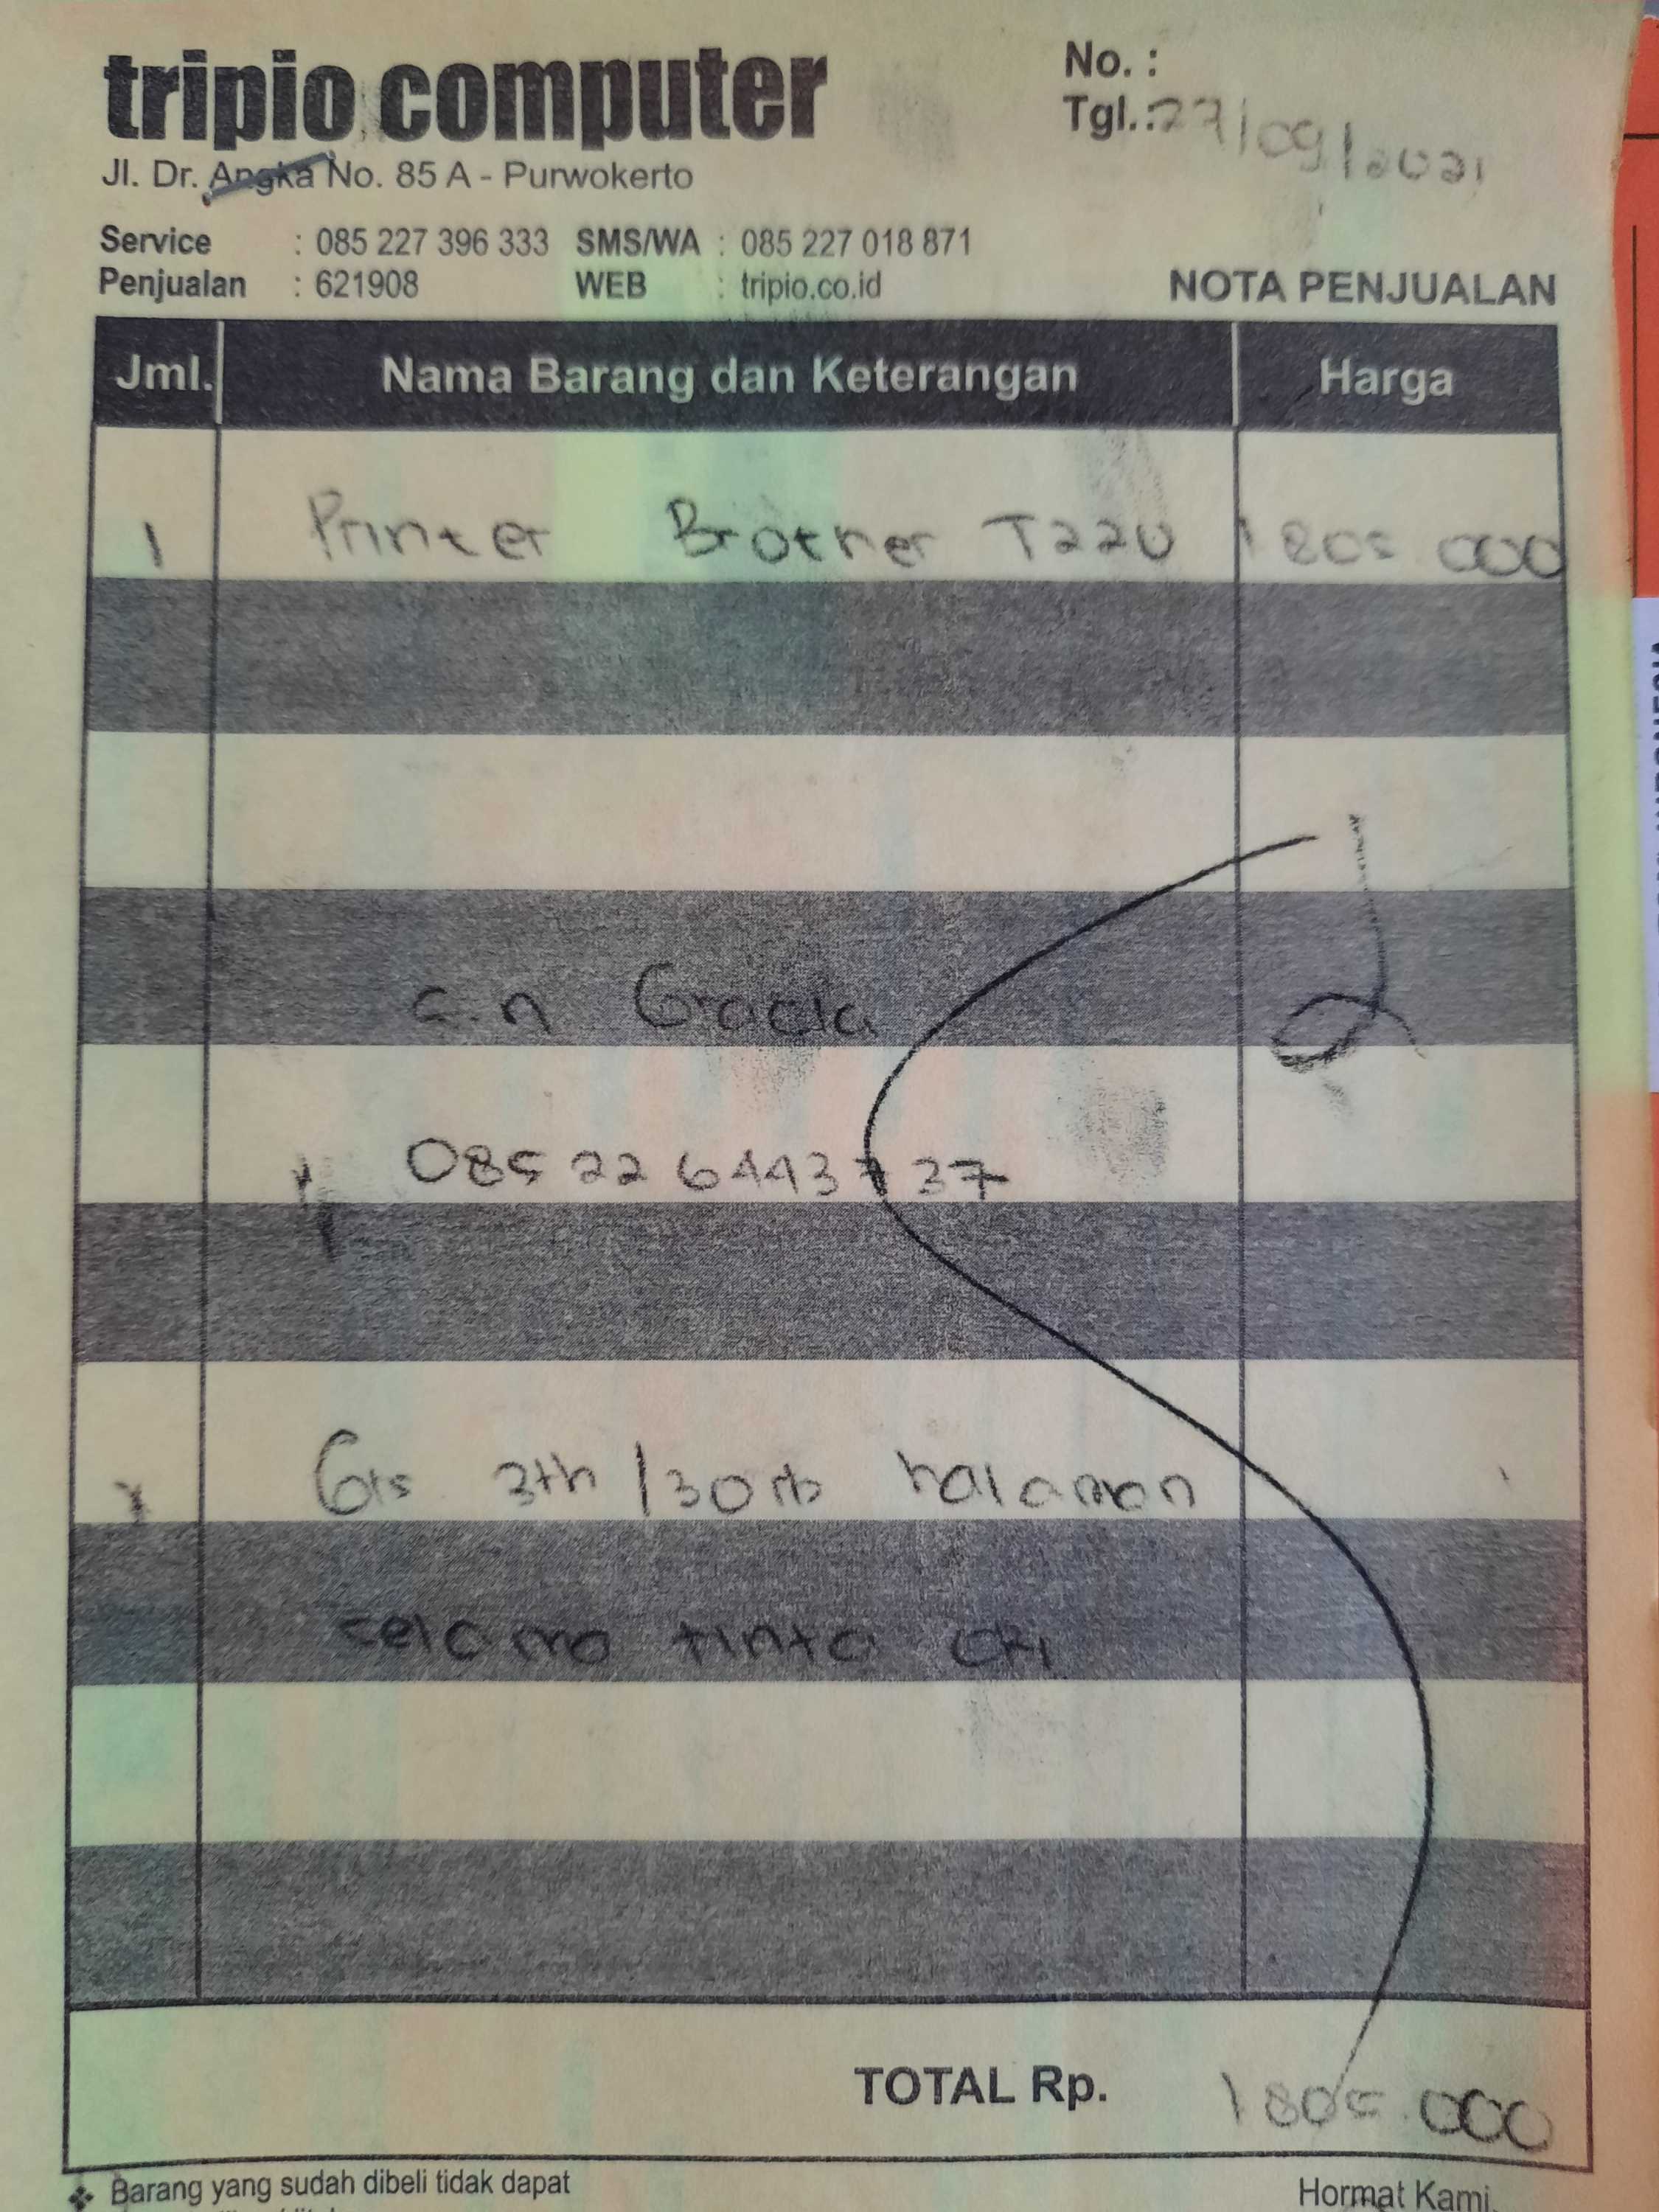 tripio computer
No. :
Tgl. : 27/09/2021
Jl. Dr. Angka No. 85 A - Purwokerto
Service : 085 227 396 333 SMS/WA : 085 227 018 871
Penjualan : 621908 WEB : tripio.co.id
NOTA PENJUALAN
Jml. Nama Barang dan Keterangan Harga
1 Printer Brother T220 1805.000
a.n
085 22 6443 37
Grs 3th / 30 rb halaman
selama tinta ori
TOTAL Rp. 1805.000
Barang yang sudah dibeli tidak dapat
Hormat Kami,